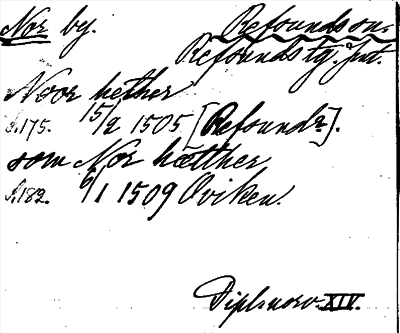 Nor by. Refoundsön.
Refounds tg. Jmt.
Noor hether
s. 175. 15/2 1505 [Refoundz].
som Nor hætther
s. 182. 6/1 1509 Oviken.
Dipl. norv. XIV.